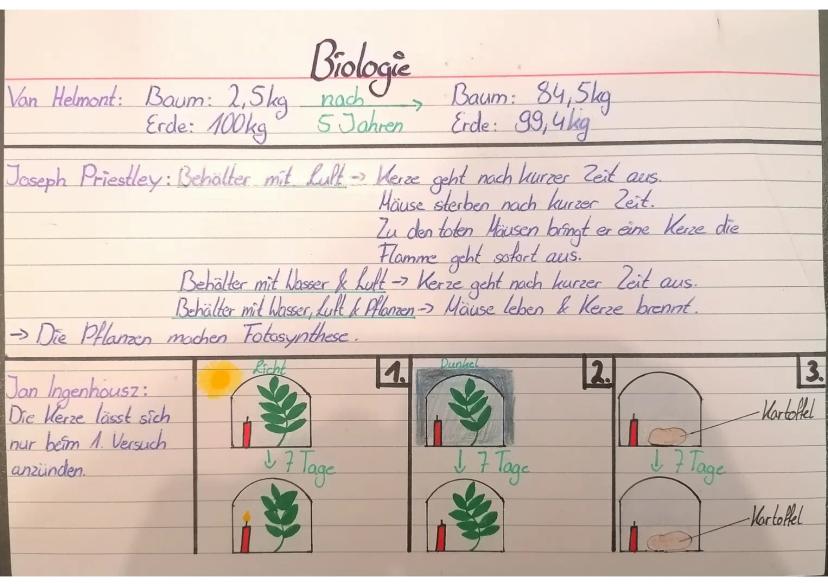 Biologie
Van Helmont: Baum: 2,5kg nach → Baum: 84,5kg
Erde: 100kg 5 Jahren Erde: 99,4kg
Joseph Priestley: Behälter mit Luft → Kerze geht nach kurzer Zeit aus.
Mäuse sterben nach kurzer Zeit.
Zu den toten Mäusen bringt er eine Kerze die
Flamme geht sofort aus.
Behälter mit Wasser & Luft → Kerze geht nach kurzer Zeit aus.
Behälter mit Wasser, Luft & Pflanzen → Mäuse leben & Kerze brennt.
→ Die Pflanzen machen Fotosynthese.
Jan Ingenhousz:
Die Kerze lässt sich
nur beim 1. Versuch
anzünden.
Licht 1.
↓ 7 Tage
Dunkel 2.
↓ 7 Tage
3.
Kartoffel
↓ 7 Tage
Kartoffel